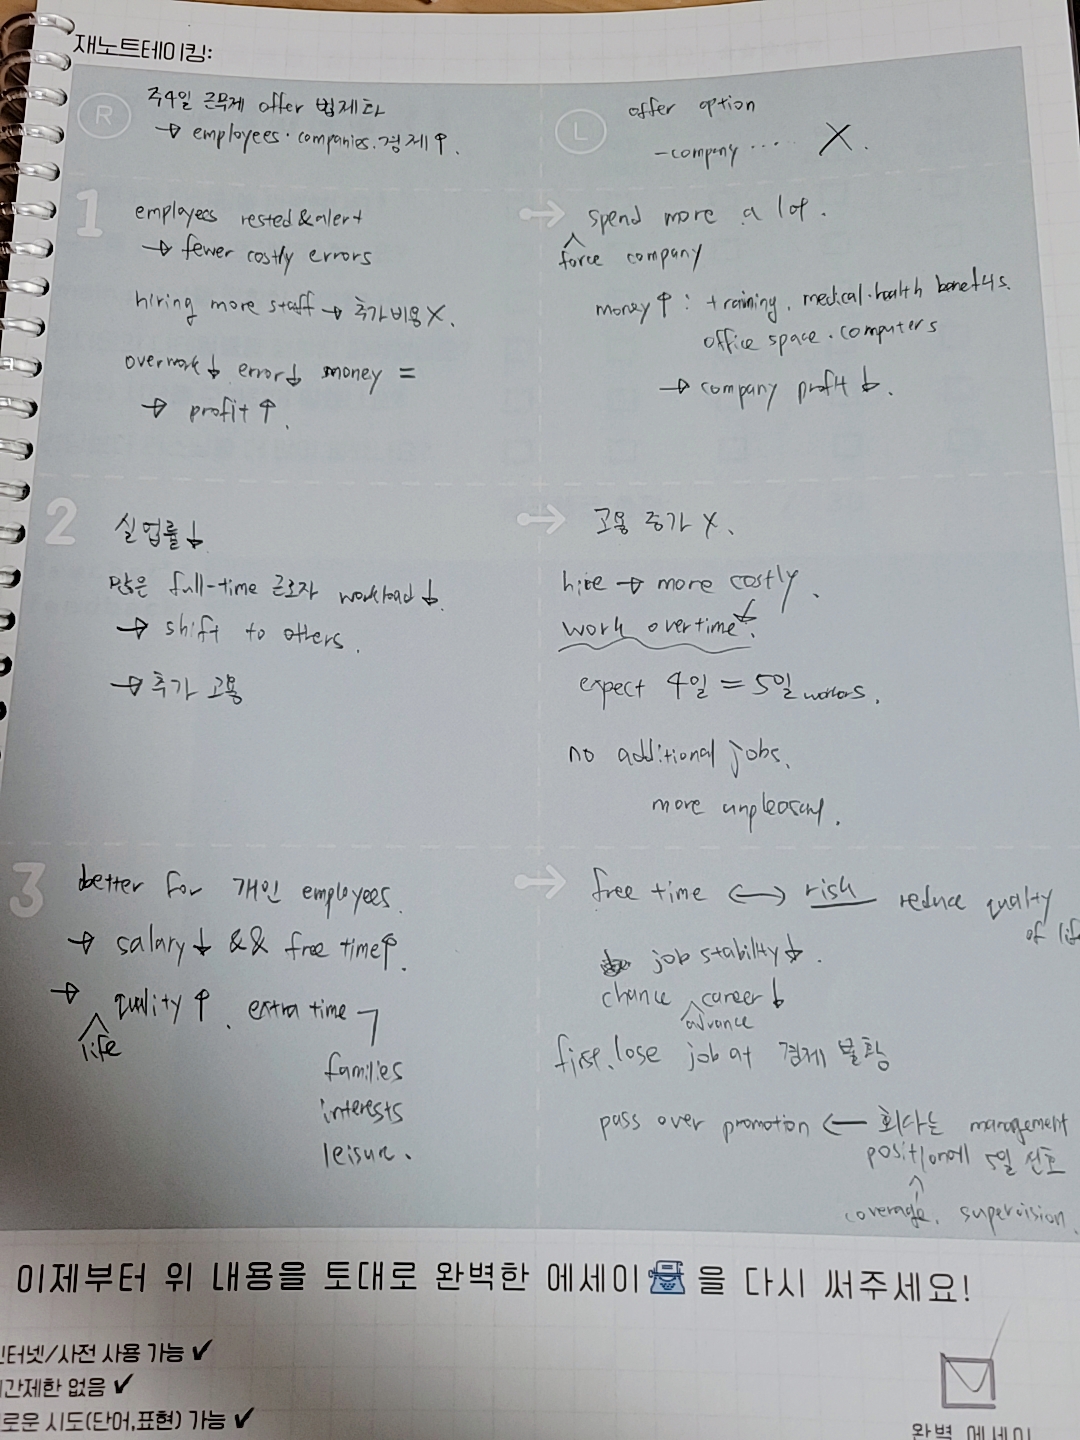 재노트테이킹:
R
주4일 근무제 offer 법제화
→ employees · companies. 경제↑.
L
offer option
- company ···· X.
1
employees rested & alert
→ fewer costly errors
hiring more staff → 추가비용X.
overwork↓ error↓ money =
→ profit↑.
→ spend more a lot.
force company
money↑ : training, medical·health benefits.
office space · computers
→ company profit↓.
2
실업률↓
많은 full-time 근로자 workload↓.
→ shift to others.
→ 추가 고용
→ 고용 증가 X.
hire → more costly.
work overtime↓.
expect 4일 = 5일 workers.
no additional jobs.
more unpleasant.
3
better for 개인 employees.
→ salary↓ && free time↑.
→ quality↑. extra time
life
families
interests
leisure.
→ free time ↔ risk reduce quality
of life
job stability↓.
chance career↓
advance
first. lose job at 경제 불황
pass over promotion ← 회사는 management
position에 5일 선호
coverage. supervision.
이제부터 위 내용을 토대로 완벽한 에세이을 다시 써주세요!
인터넷/사전 사용 가능 ✔
시간제한 없음 ✔
새로운 시도(단어,표현) 가능 ✔
완벽 에세이